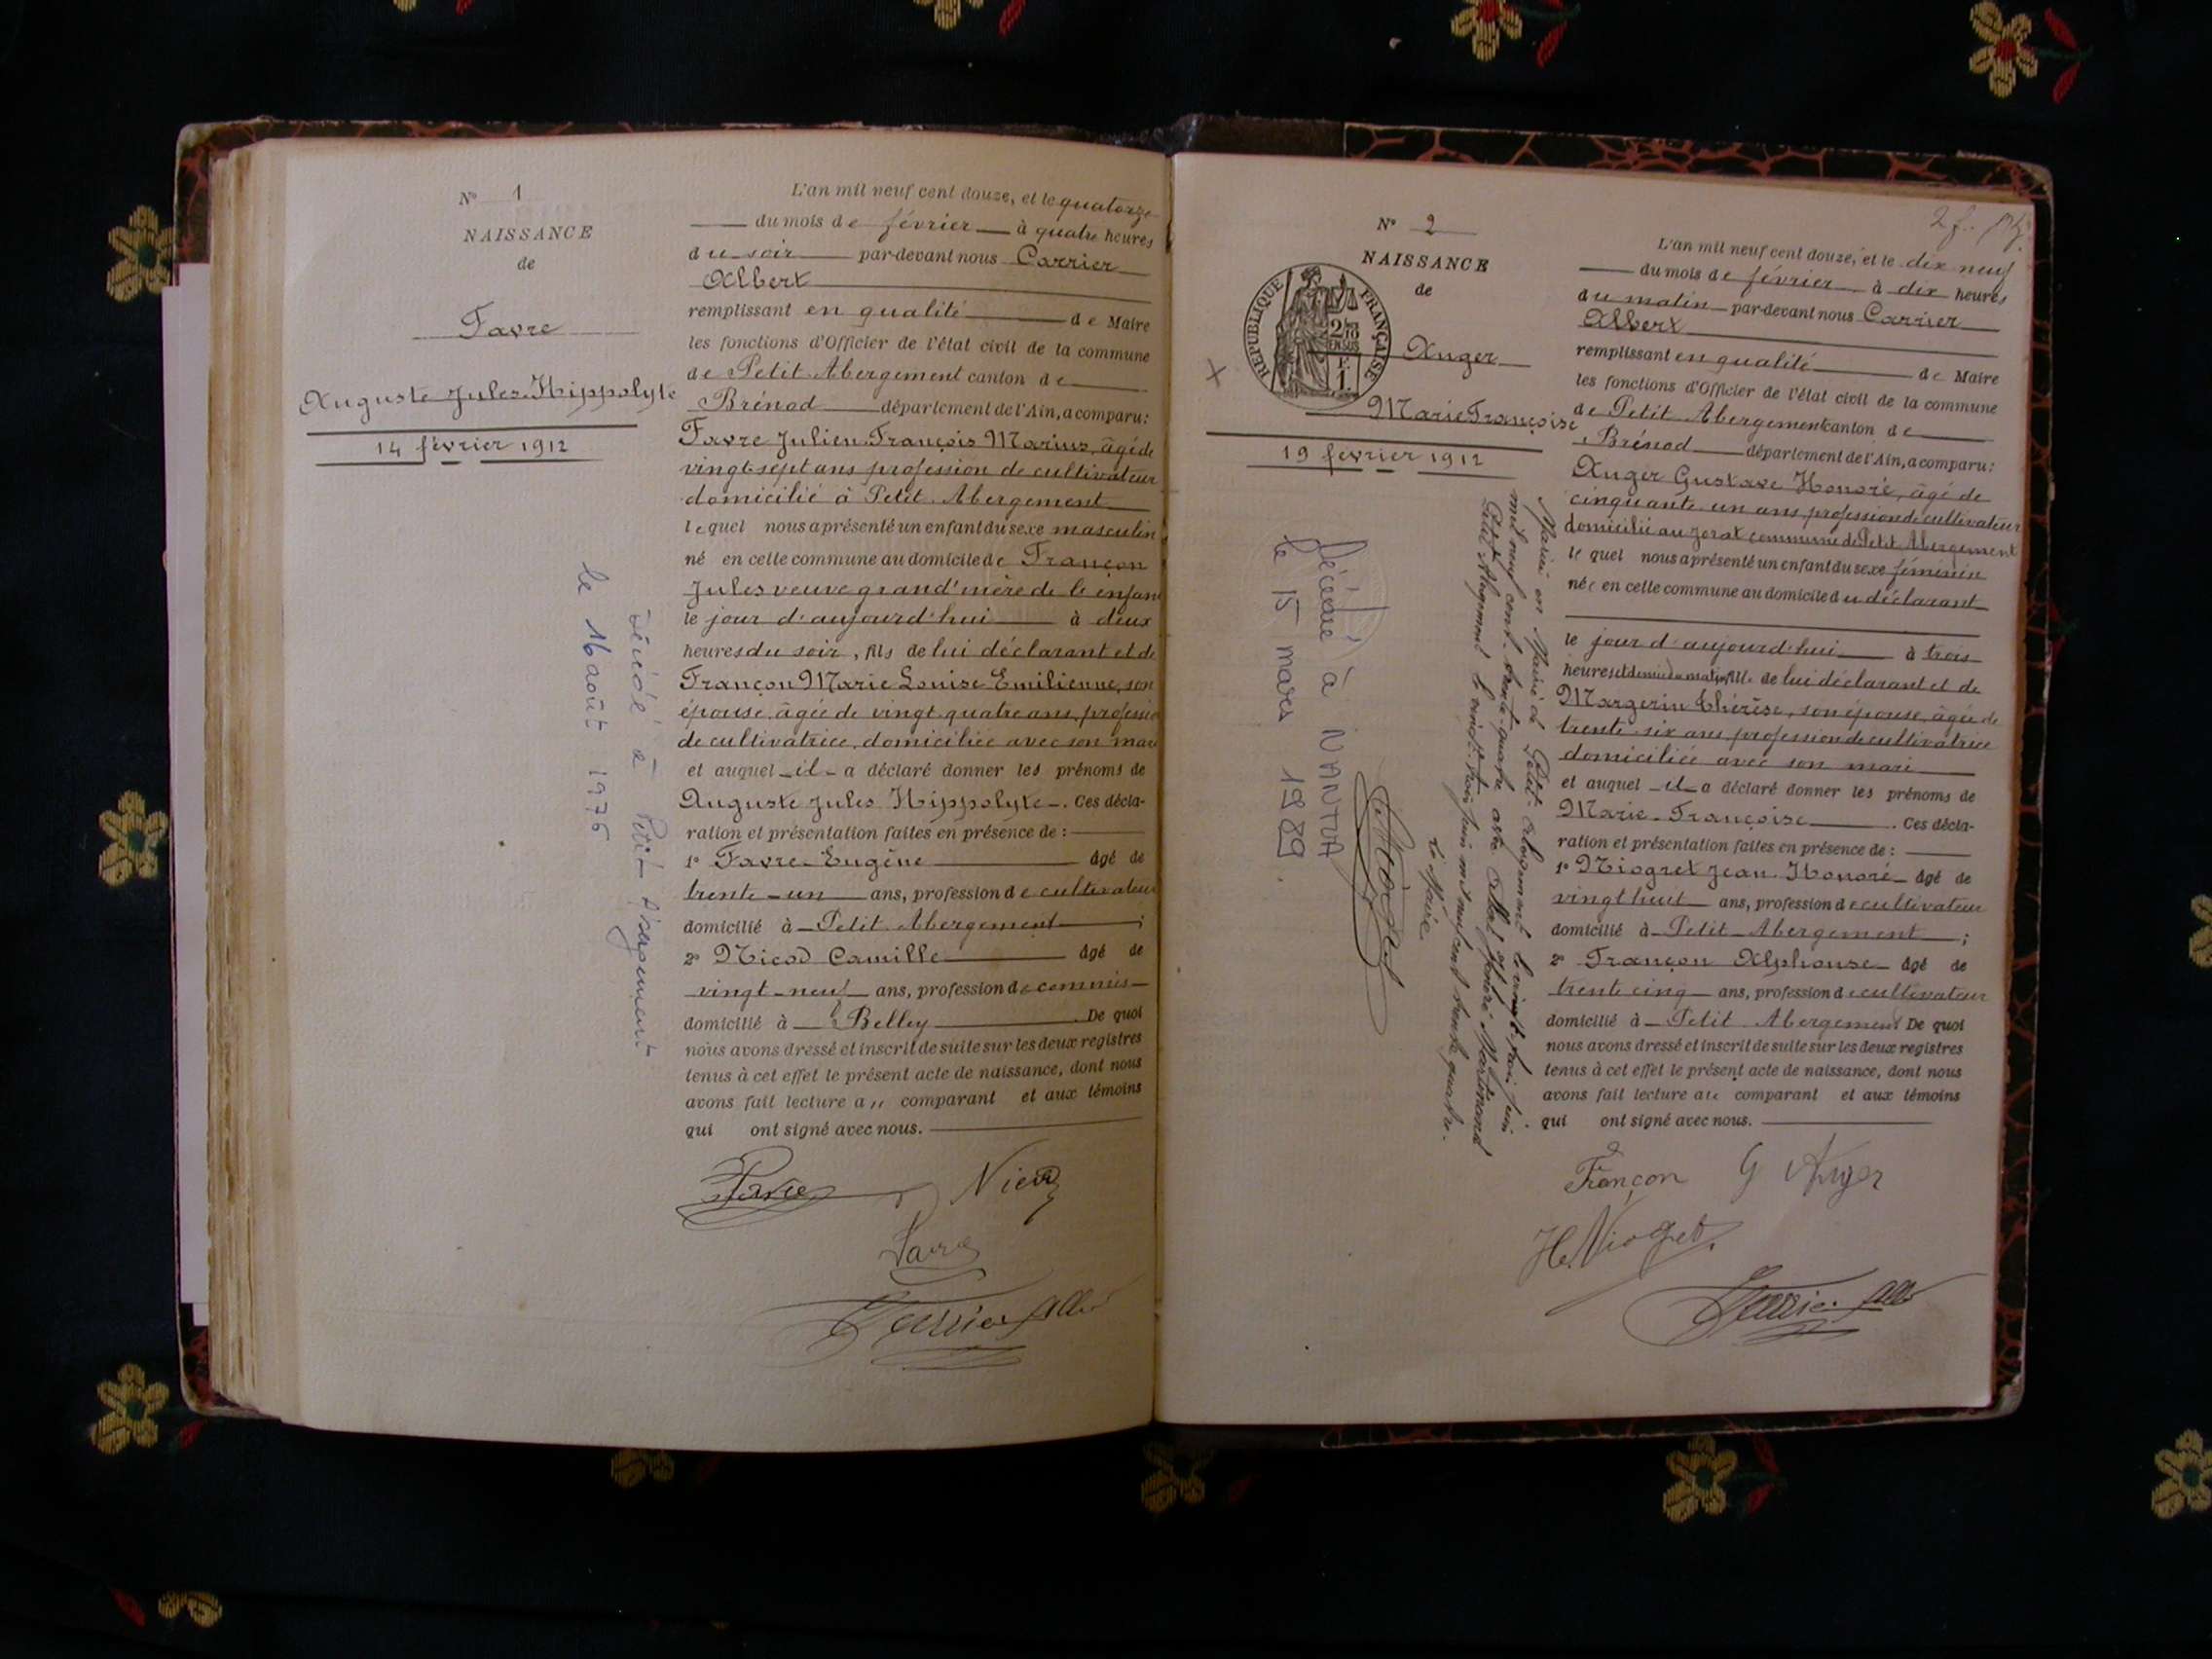 N° 1
NAISSANCE
de
Favre
Auguste Jules Hippolyte
14 février 1912
L'an mil neuf cent douze, et le quatorze
du mois de février à quatre heures
du soir par-devant nous Carrier
Albert
remplissant en qualité de Maire
les fonctions d'Officier de l'état civil de la commune
de Petit Abergement canton de
Brénod département de l'Ain, a comparu:
Favre Julien François Marius, âgé de
vingt sept ans profession de cultivateur
domicilié à Petit Abergement
lequel nous a présenté un enfant du sexe masculin
né en cette commune au domicile de Françon
Jules veuve grand'mère de le enfant
le jour d'aujourd'hui à deux
heures du soir, fils de lui déclarant et de
Françon Marie Louise Emilienne, son
épouse, âgée de vingt quatre ans, profession
de cultivatrice, domiciliée avec son mari
et auquel il a déclaré donner les prénoms de
Auguste Jules Hippolyte. Ces décla-
ration et présentation faites en présence de :
1° Favre Eugène âgé de
trente-un ans, profession de cultivateur
domicilié à Petit Abergement ;
2° Nicod Camille âgé de
vingt-neuf ans, profession de commis
domicilié à Belley De quoi
nous avons dressé et inscrit de suite sur les deux registres
tenus à cet effet le présent acte de naissance, dont nous
avons fait lecture au comparant et aux témoins
qui ont signé avec nous.
Favre Nicod
Favre
Carrier Albt
Décédé à Petit Abergement
le 16 août 1976
2 f.
N° 2
NAISSANCE
de
REPUBLIQUE FRANÇAISE
2/10
EN SUS
1 F.
Auger
Marie Françoise
19 février 1912
L'an mil neuf cent douze, et le dix neuf
du mois de février à dix heures
du matin par-devant nous Carrier
Albert
remplissant en qualité de Maire
les fonctions d'Officier de l'état civil de la commune
de Petit Abergement canton de
Brénod département de l'Ain, a comparu:
Auger Gustave Honoré, âgé de
cinquante un ans, profession de cultivateur
domicilié au Jorat commune de Petit Abergement
lequel nous a présenté un enfant du sexe féminin
née en cette commune au domicile du déclarant
le jour d'aujourd'hui à trois
heures et demie du matin, fille de lui déclarant et de
Margerin Thérèse, son épouse, âgée de
trente-six ans, profession de cultivatrice
domiciliée avec son mari
et auquel il a déclaré donner les prénoms de
Marie Françoise. Ces décla-
ration et présentation faites en présence de :
1° Niogret Jean Honoré âgé de
vingt huit ans, profession de cultivateur
domicilié à Petit Abergement ;
2° Françon Alphonse âgé de
trente cinq ans, profession de cultivateur
domicilié à Petit Abergement De quoi
nous avons dressé et inscrit de suite sur les deux registres
tenus à cet effet le présent acte de naissance, dont nous
avons fait lecture au comparant et aux témoins
qui ont signé avec nous.
Françon G Auger
H. Niogret
Carrier Albt
Mariée en Mairie de Petit Abergement le vingt-trois juin
mil neuf cent trente-quatre avec Honoré Martinand
Petit Abergement le vingt-trois juin mil neuf cent trente quatre.
Le Maire
Décédée à NANTUA
le 15 mars 1989.